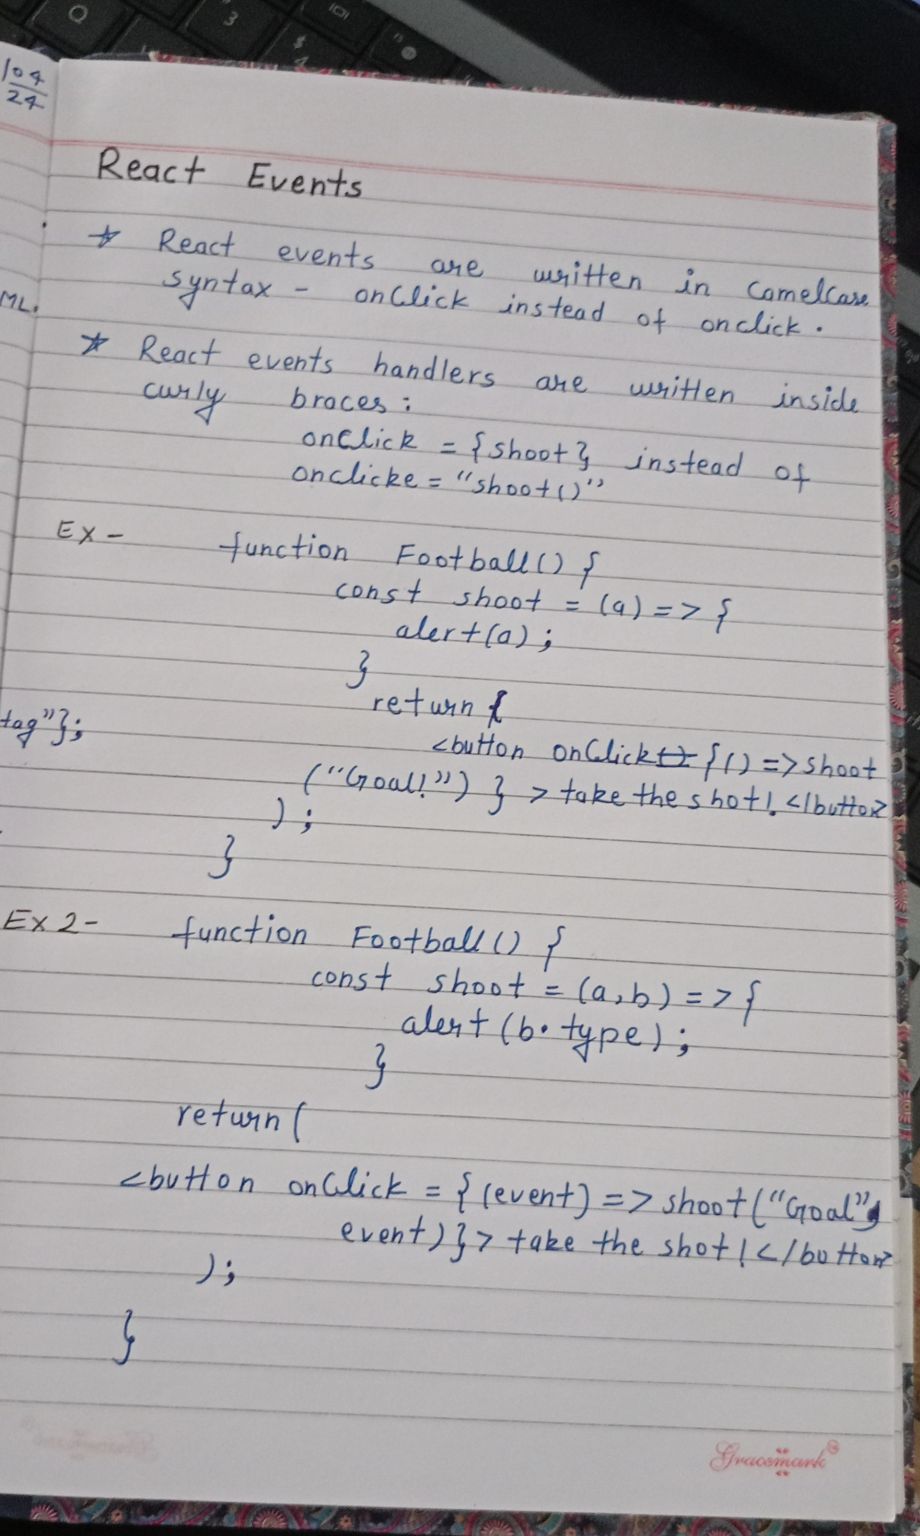 104
24
React Events
* React events are written in Camelcase
syntax - onClick instead of onclick.
ML.
* React events handlers are written inside
curly braces:
onClick = {shoot} instead of
onclicke = "shoot()"
Ex - function Football() {
const shoot = (a) => {
alert(a);
}
return {
tag"};
<button onClick = {() => shoot
("Goal!") } > take the shot! </button>
);
}
Ex 2 - function Football() {
const shoot = (a,b) => {
alert(b.type);
}
return (
<button onClick = {(event) => shoot("Goal",
event)}> take the shot!</button>
);
}
Gracemark